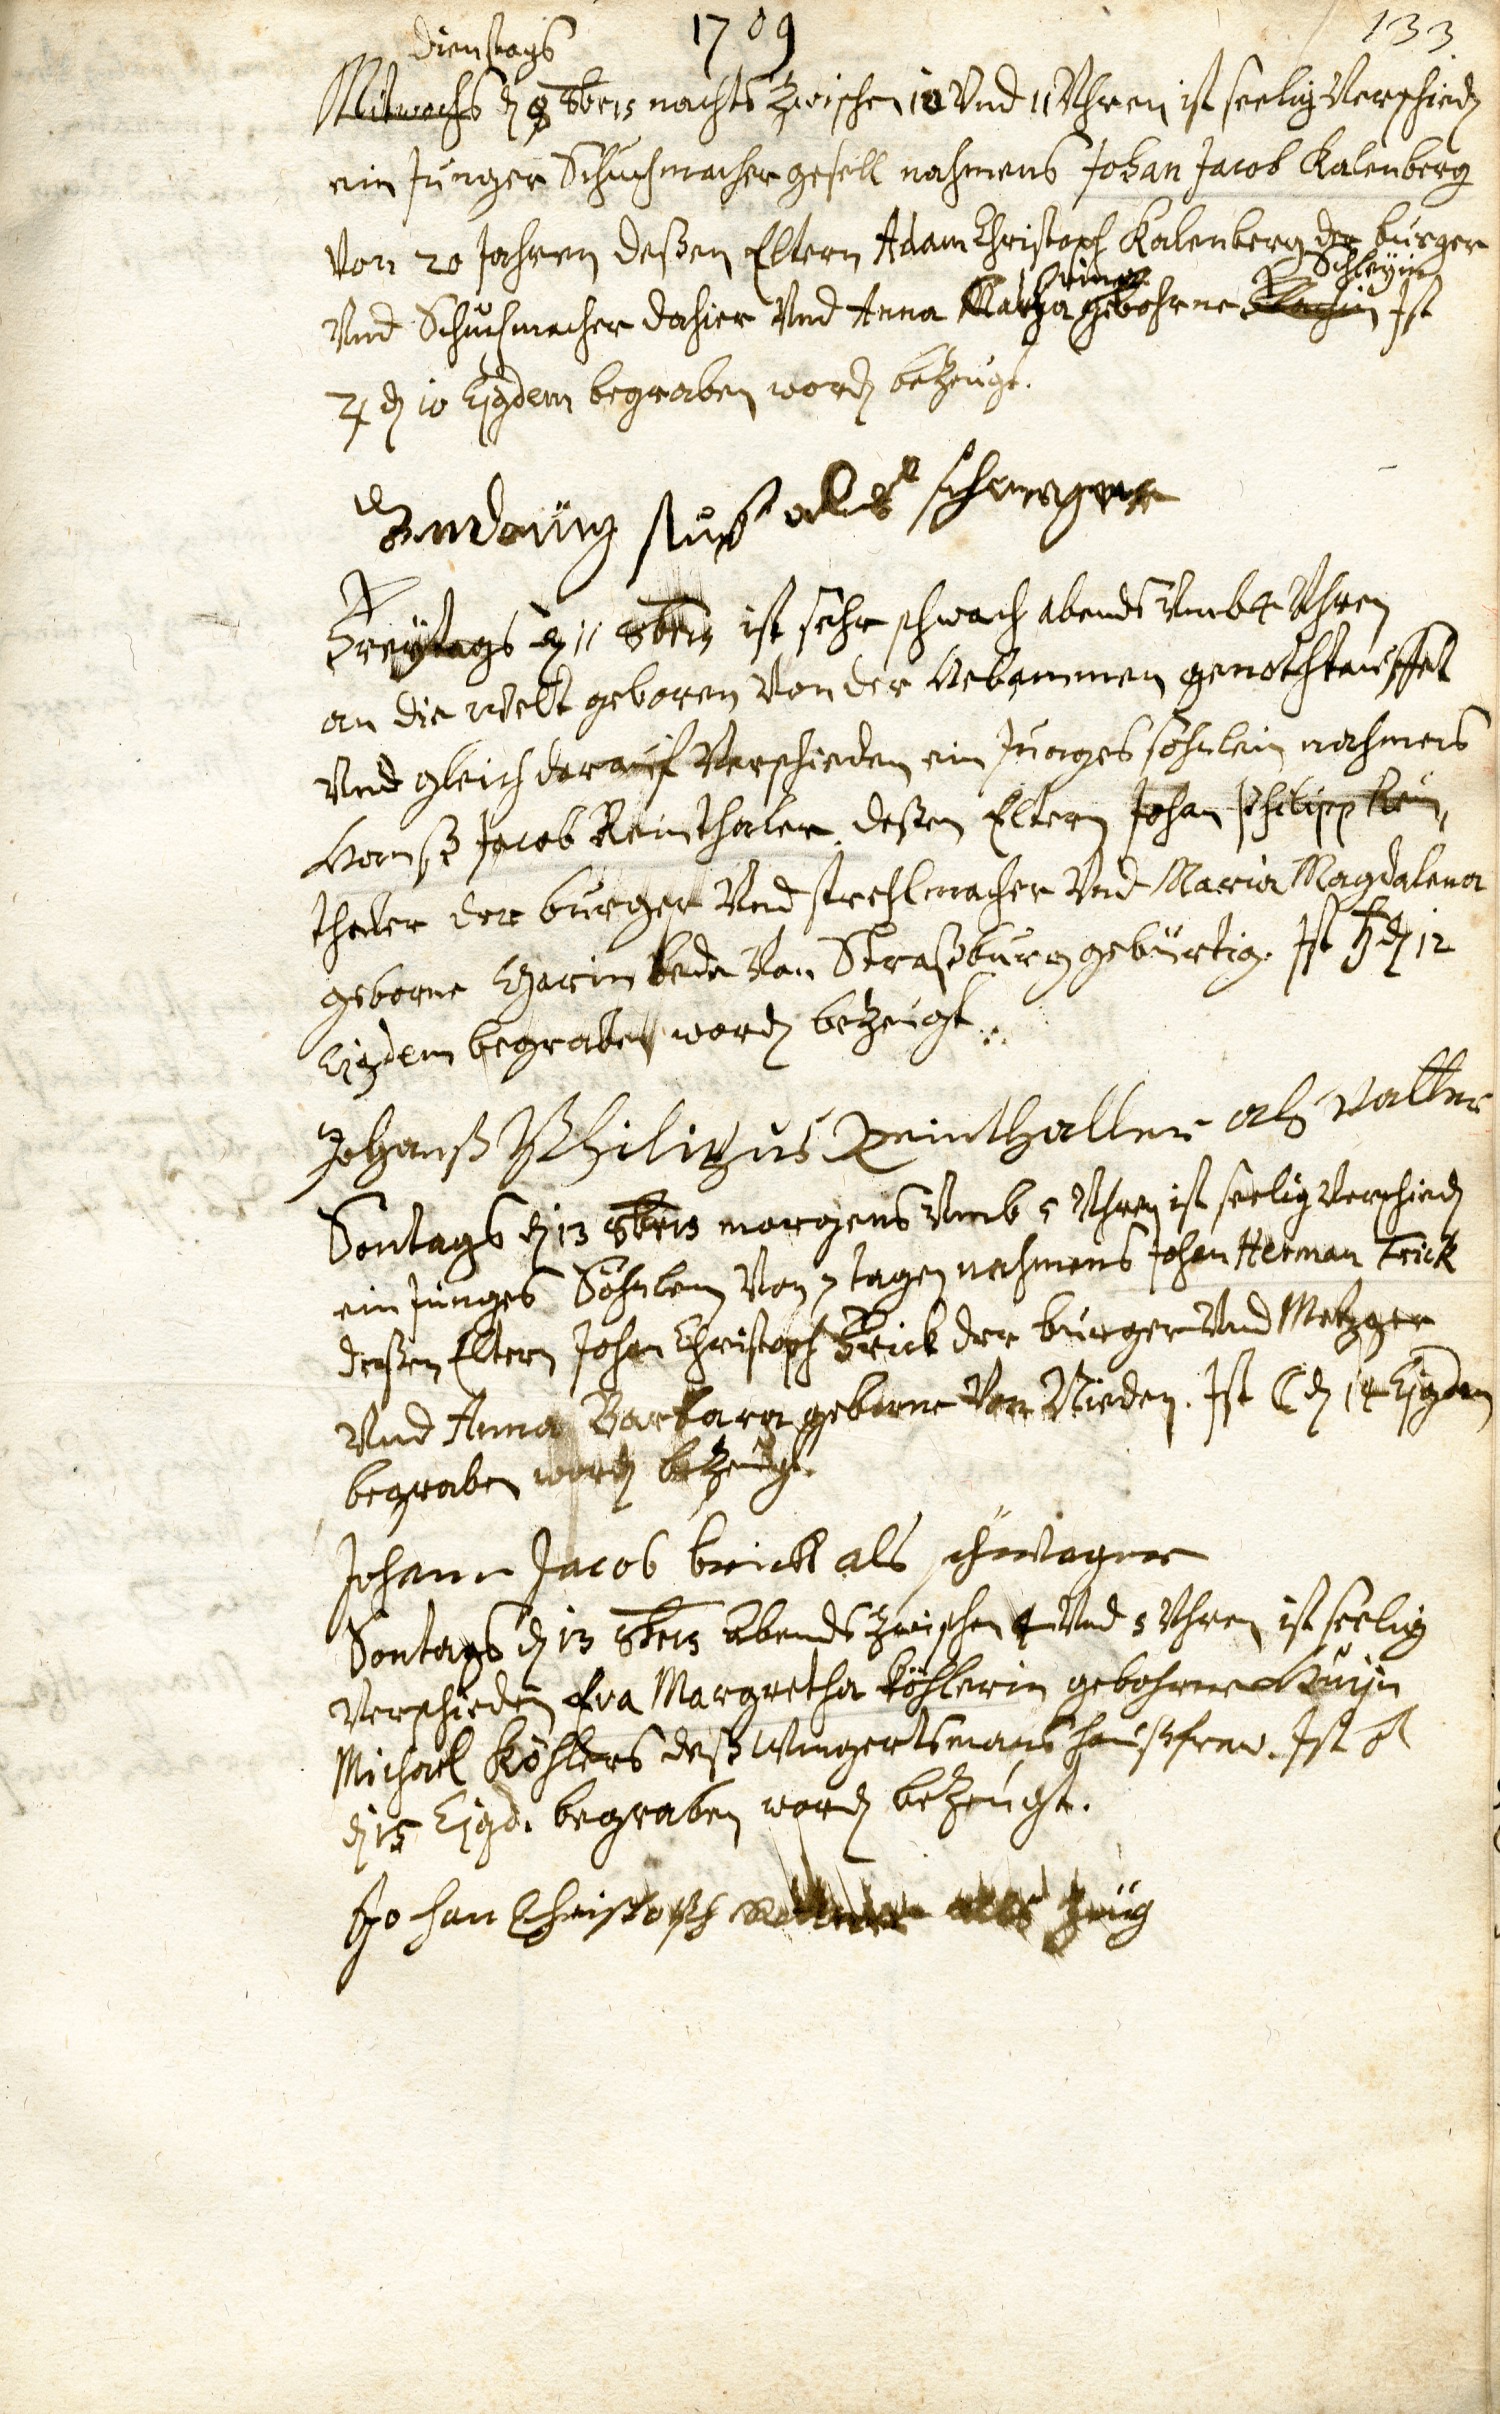 1709
133
Dienstags
Mitwochs d 8 8bris nachts zwischen 10 Und 11 Uhren ist seelig Verschied
ein Junger Schuchmacher gesell nahmens Johan Jacob Kalenberg
Von 20 Jahren deßen Eltern Adam Christoph Kalenberg der burger
Schleyin
Und Schuchmacher dahier Und Anna gebohrne Ist
♃ d 10 Ejgdem begraben word bezeugt.
als schwager
Freytags d 11 8bris ist sehr schwach abends Umb 4 Uhren
an die welt geboren Von der Hebammen genothtauffet
Und gleich darauf Verschieden ein Junges söhnlein nahmens
Hanß Jacob Reinthaler. deßen Eltern Johan Philipp Rein,
thaler der burger Und strehlmacher Und Maria Magdalena
geborne beede Von Straßburg gebürtig. Ist ♄ d 12
Ejgdem begraben word bezeugt.
Johanß Philipus Reinthaller als vatter
Sontags d 13 8bris morgens Umb 5 Uhren ist seelig Verschied
ein Junges Söhnlein Von 7 tagen nahmens Johan Herman Frick
deßen Eltern Johan Christoph Frick der burger Und Metzger
Und Anna Barbara geborne Von Nieden. Ist ☾ d 14 Ejgdem
begraben word bezeugt.
Johann Jacob als schwager
Sontags d 13 8bris Abends zwischen 4 Und 5 Uhren ist seelig
Verschieden Eva Margretha Köhlerin gebohrne
Michael Köhlers deß Wingertsmans haußfraw. Ist ♂
d 15 Ejgd. begraben word bezeugt.
Johan Christoph als zeug